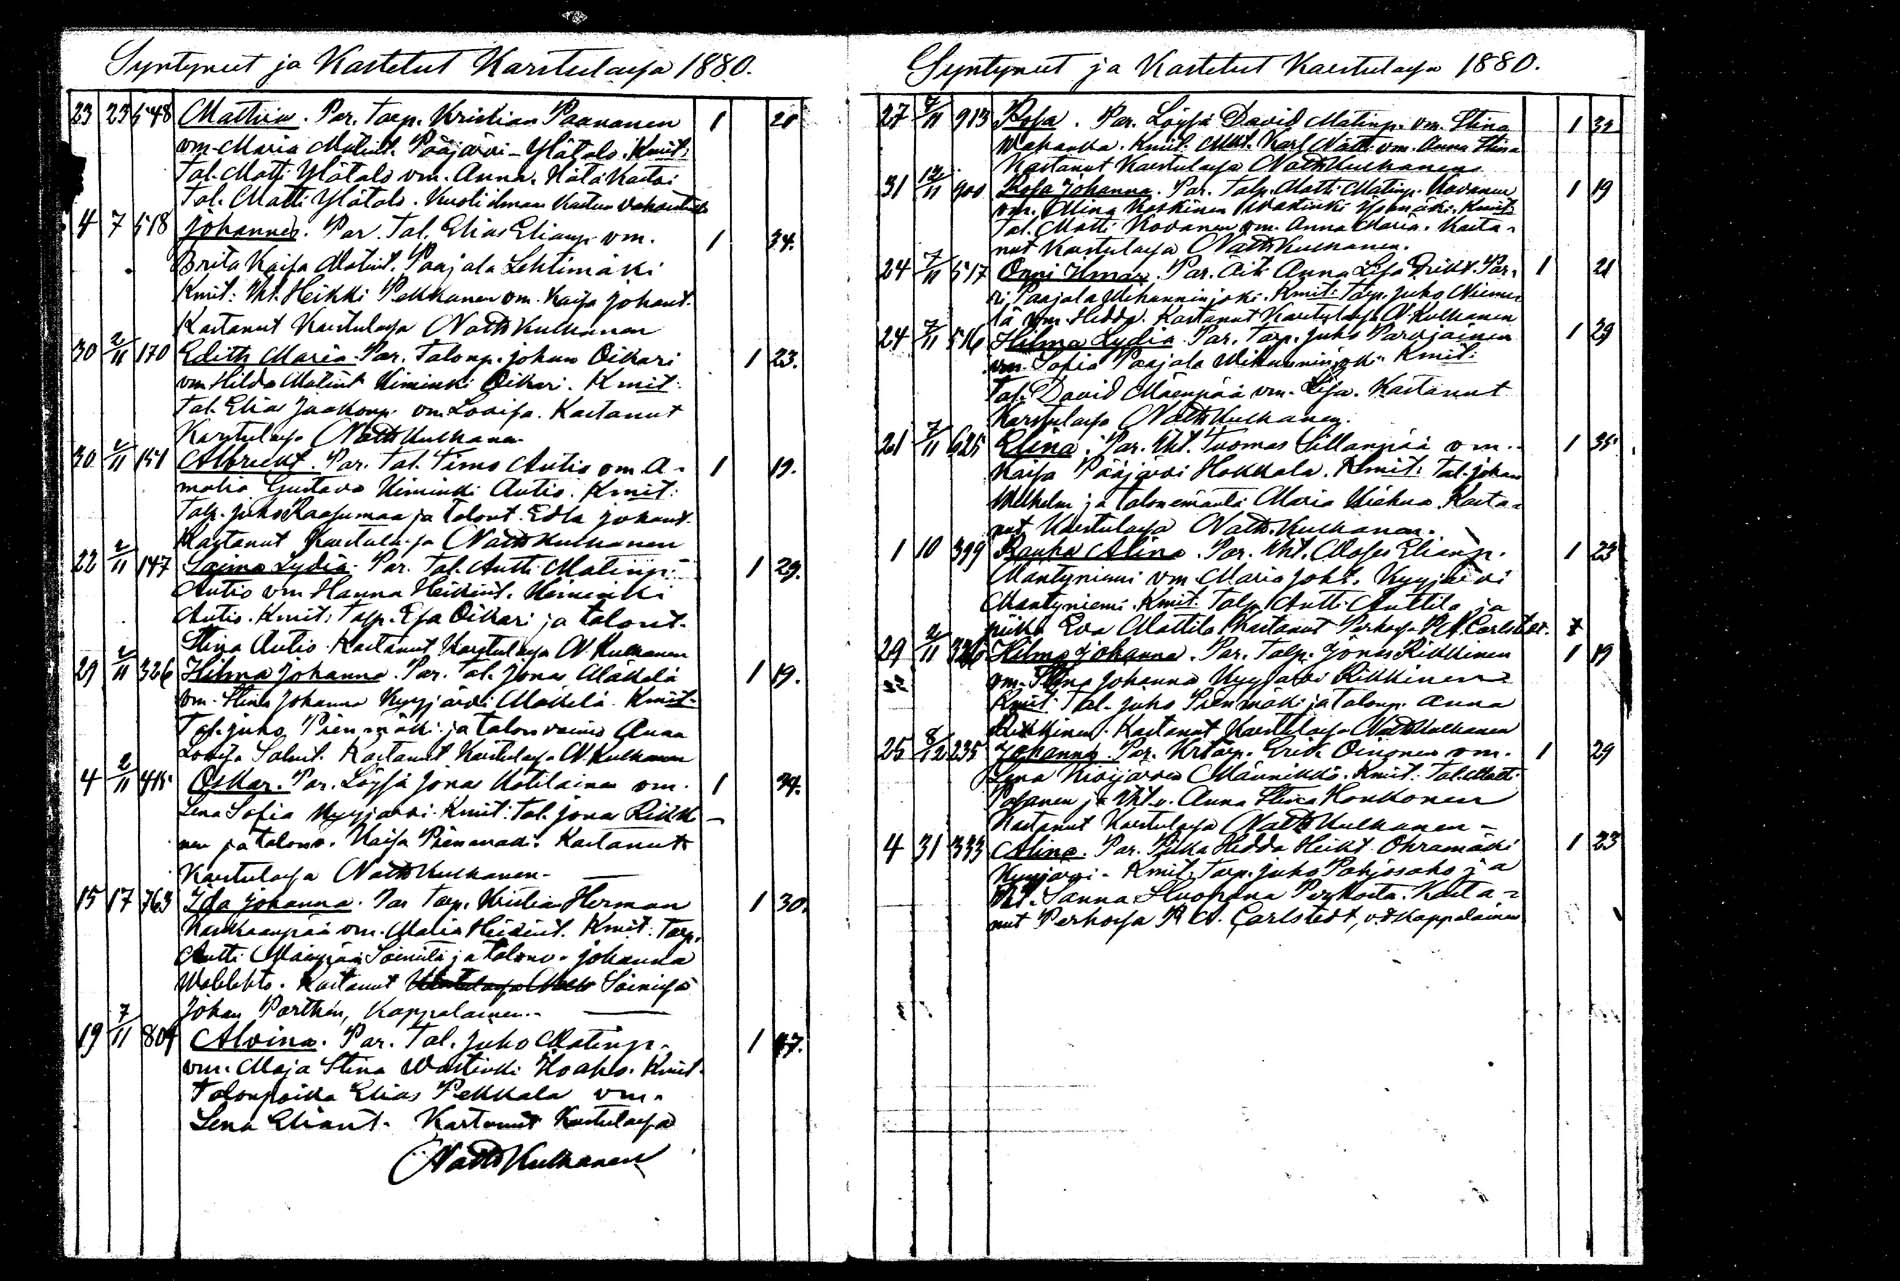 Syntyneet ja Kastetut Karstulasja 1880.
23 23 548 Mathia. Par. Torp. Kristian Paananen 1 21
vm. Maria Matint. Pääjärvi Ylätalo. Kmit:
Tal. Matti Ylätalo vm. Anna.
Tal. Matti Ylätalo. Kuoli ilman
4 7 518 Johannes. Par. Tal. Elias Elianp. vm. 1 34.
Brita Kaisa Matint. Paajala Lehtimäki
Kmit: Vkt. Heikki Pekkanen vm. Kaisa Johant.
Kastanut Karstulasja Nath Kulkanen
30 2/11 170 Edith Maria. Par. Talonp. Johan Oikari 1 23.
vm. Hilda Matint Kiminki Oikari. Kmit:
Tal. Elias Jaakonp. vm. Lovisa. Kastanut
Karstulasja Nath Kulkanen
30 2/11 151 Albrekt. Par. Tal. Timo Autio vm. A- 1 19.
malia Gustava Kiminki Autio. Kmit:
Talp. Juho Raasumaa ja Talont. Edla Johant.
Kastanut Karstulasja Nath Kulkanen
22 2/11 147 Saima Lydia. Par. Tal. Antti Matinp. 1 29.
Autio vm Hanna Heikint. Kiminki
Autio. Kmit: Talp. Esa Oikari ja talont.
Stina Autio. Kastanut Karstulasja N Kulkanen
29 2/11 326 Hilma Johanna. Par. Tal. Jonas Mäkelä 1 19.
vm. Stina Johanna Kyyjärvi Mäkelä. Kmit.
Tal. Juho Pienmäki ja talon vaimo Anna
Lovisa Salut. Kastanut Karstulasja N. Kulkanen
4 2/11 415 Oskar. Par. Löysä Jonas Kotilainen vm. 1 24.
Lena Sofia Kyyjärvi. Kmit: Tal. Jonas Rikki-
nen ja talonv. Kaisa Pienmäki. Kastanut
Karstulasja Nath Kulkanen
15 17 763 Ida Johanna. Par Torp. Kristian Herman 1 30.
Kankaanpää vm. Maria Heikint. Kmit: Torp.
Antti Mäenpää Soinista ja talonv. Johanna
Kastanut Soinisja
Johan Parthén, Kappalainen.
19 7/11 804 Alvina. Par. Tal. Juho Matinp. 1 47.
vm. Maja Stina Wastinki Hoaho. Kmit.
Talonpoika Elias Pekkala vm.
Lena Eliant. Kastanut Karstulasja
Nath Kulkanen
Syntyneet ja Kastetut Karstulasja 1880.
27 7/11 913 Rosa. Par. Löysä David Matinp. vm. Stina 1 32
Wahanka. Kmit. Mkt. Karl Matt. vm. Anna Stina
Kastanut Karstulasja Nath Kulkanen
31 12/11 900 Rosa Johanna. Par. Talp. Matti Matinp. Kovanen 1 19
vm. Mina Koskinen Wastinki Kmit:
Tal. Matti Kovanen vm. Anna Maria. Kasta-
nut Karstulasja Nath Kulkanen.
24 7/11 517 Onni Ilmari. Par. Äiti Anna Lisa Erikt. 1 21
Paajala Wihanninjoki. Kmit: Torp. Juho Nieme-
lä vm. Hedda. Kastanut Karstulasja N. Kulkanen
24 7/11 516 Hilma Lydia. Par. Torp. Juho Parviainen 1 29
vm. Sofia Paajala Wihanninjoki. Kmit:
Tal. David Mäenpää vm. Lisa. Kastanut
Karstulasja Nath Kulkanen.
21 7/11 625 Elina. Par. Vkt. Tuomas Sillanpää vm. 1 35
Kaisa Pääjärvi Hokkala. Kmit: Tal. Johan
Wilhelm ja talonemäntä Maria Kasta-
nut Karstulasja Nath. Kulkanen.
1 10 399 Rauha Alina. Par. Vkt. Moses Elianp. 1 23
Mantyniemi vm. Maria Joht. Kyyjärvi
Mantyniemi. Kmit. Talp. Antti Anttila ja
piika Eva Mattila. Kastanut Perhosja R A. Carlstedt.
29 2/11 326 Hilma Johanna. Par. Talp. Jonas Rikkinen 1 19
vm. Stina Johanna Kyyjärvi Rikkinen
Kmit: Tal. Juho Pienmäki ja talonp. Anna
Rikkinen. Kastanut Karstulasja Nath Kulkanen
25 8/12 235 Johannes. Par. Krtorp. Erik Oinonen vm. 1 29
Lena Kwijärvi Männikkö. Kmit: Tal. Matti
Poranen ja Vkt. v. Anna Stina Honkonen
Kastanut Karstulasja Nath Kulkanen
4 31 333 Alina. Par. Piika Hedda Heikt. Ohramäki 1 23
Kyyjärvi. Kmit: Torp. Juho Pohjosaho ja
Vkt. Sanna Kasta-
nut Perhosja R A. Carlstedt, v.t. Kappalainen